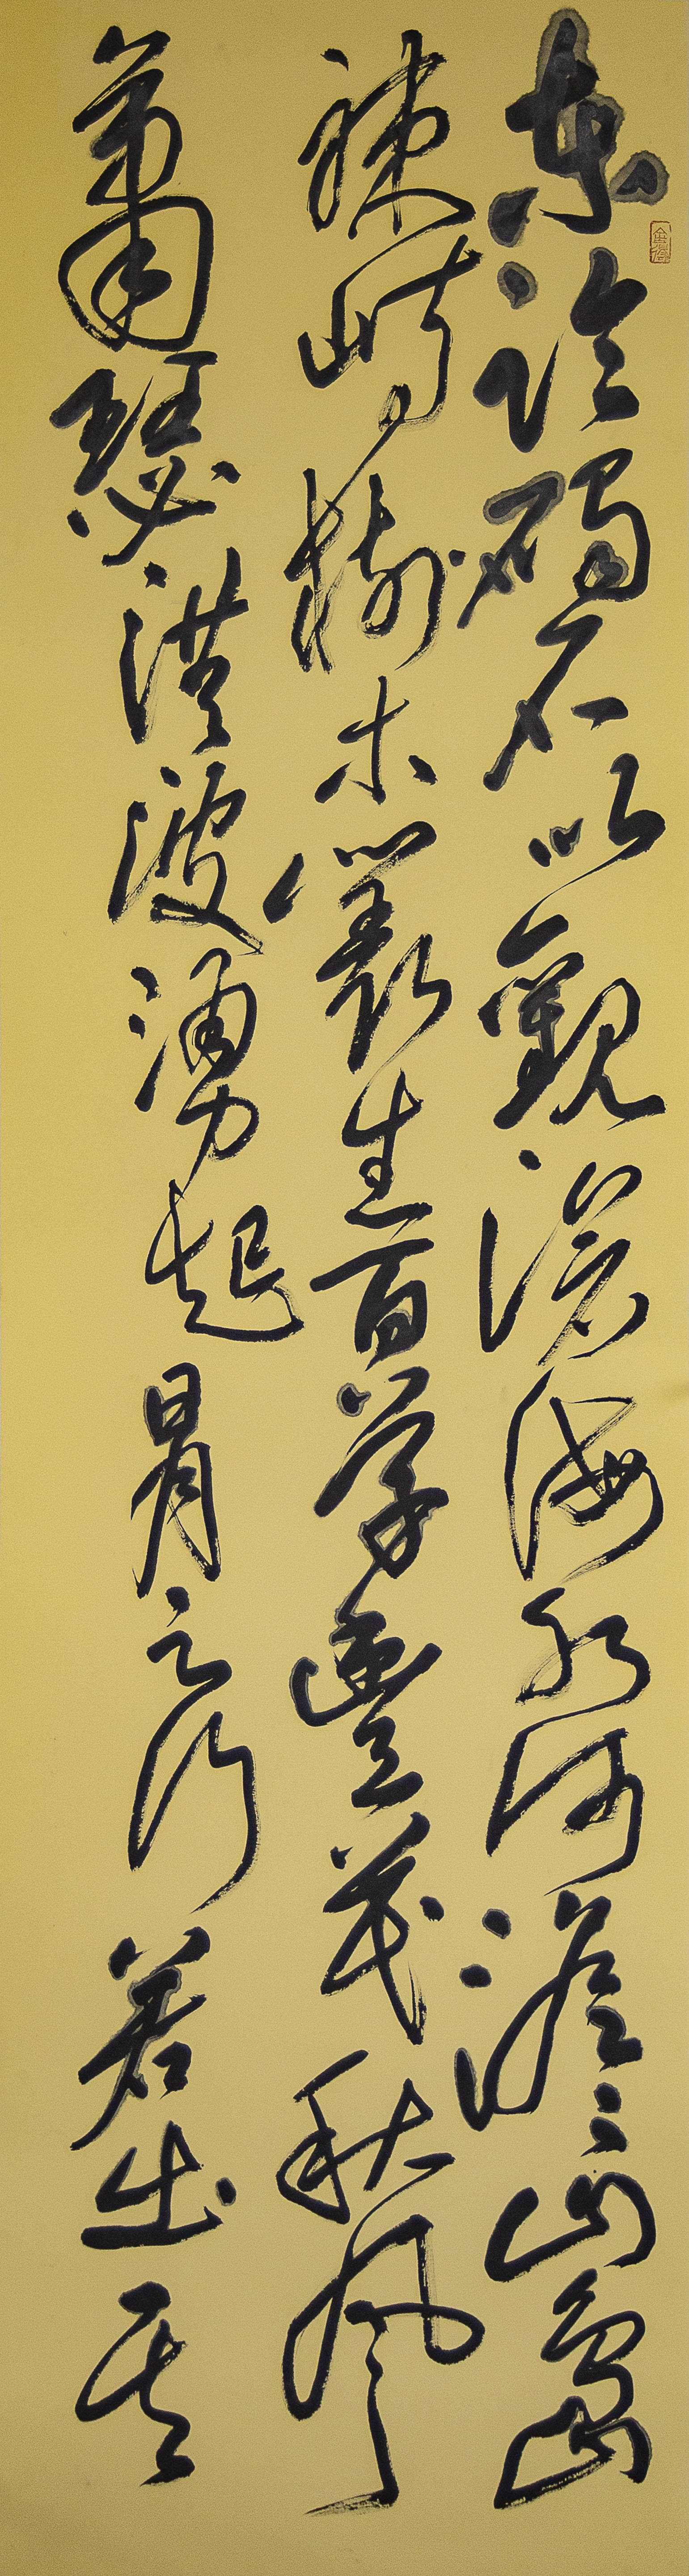 東臨碣石以觀滄海水何澹〻山島
竦峙樹木叢生百草豐茂秋風
蕭瑟洪波湧起日月之行若出其